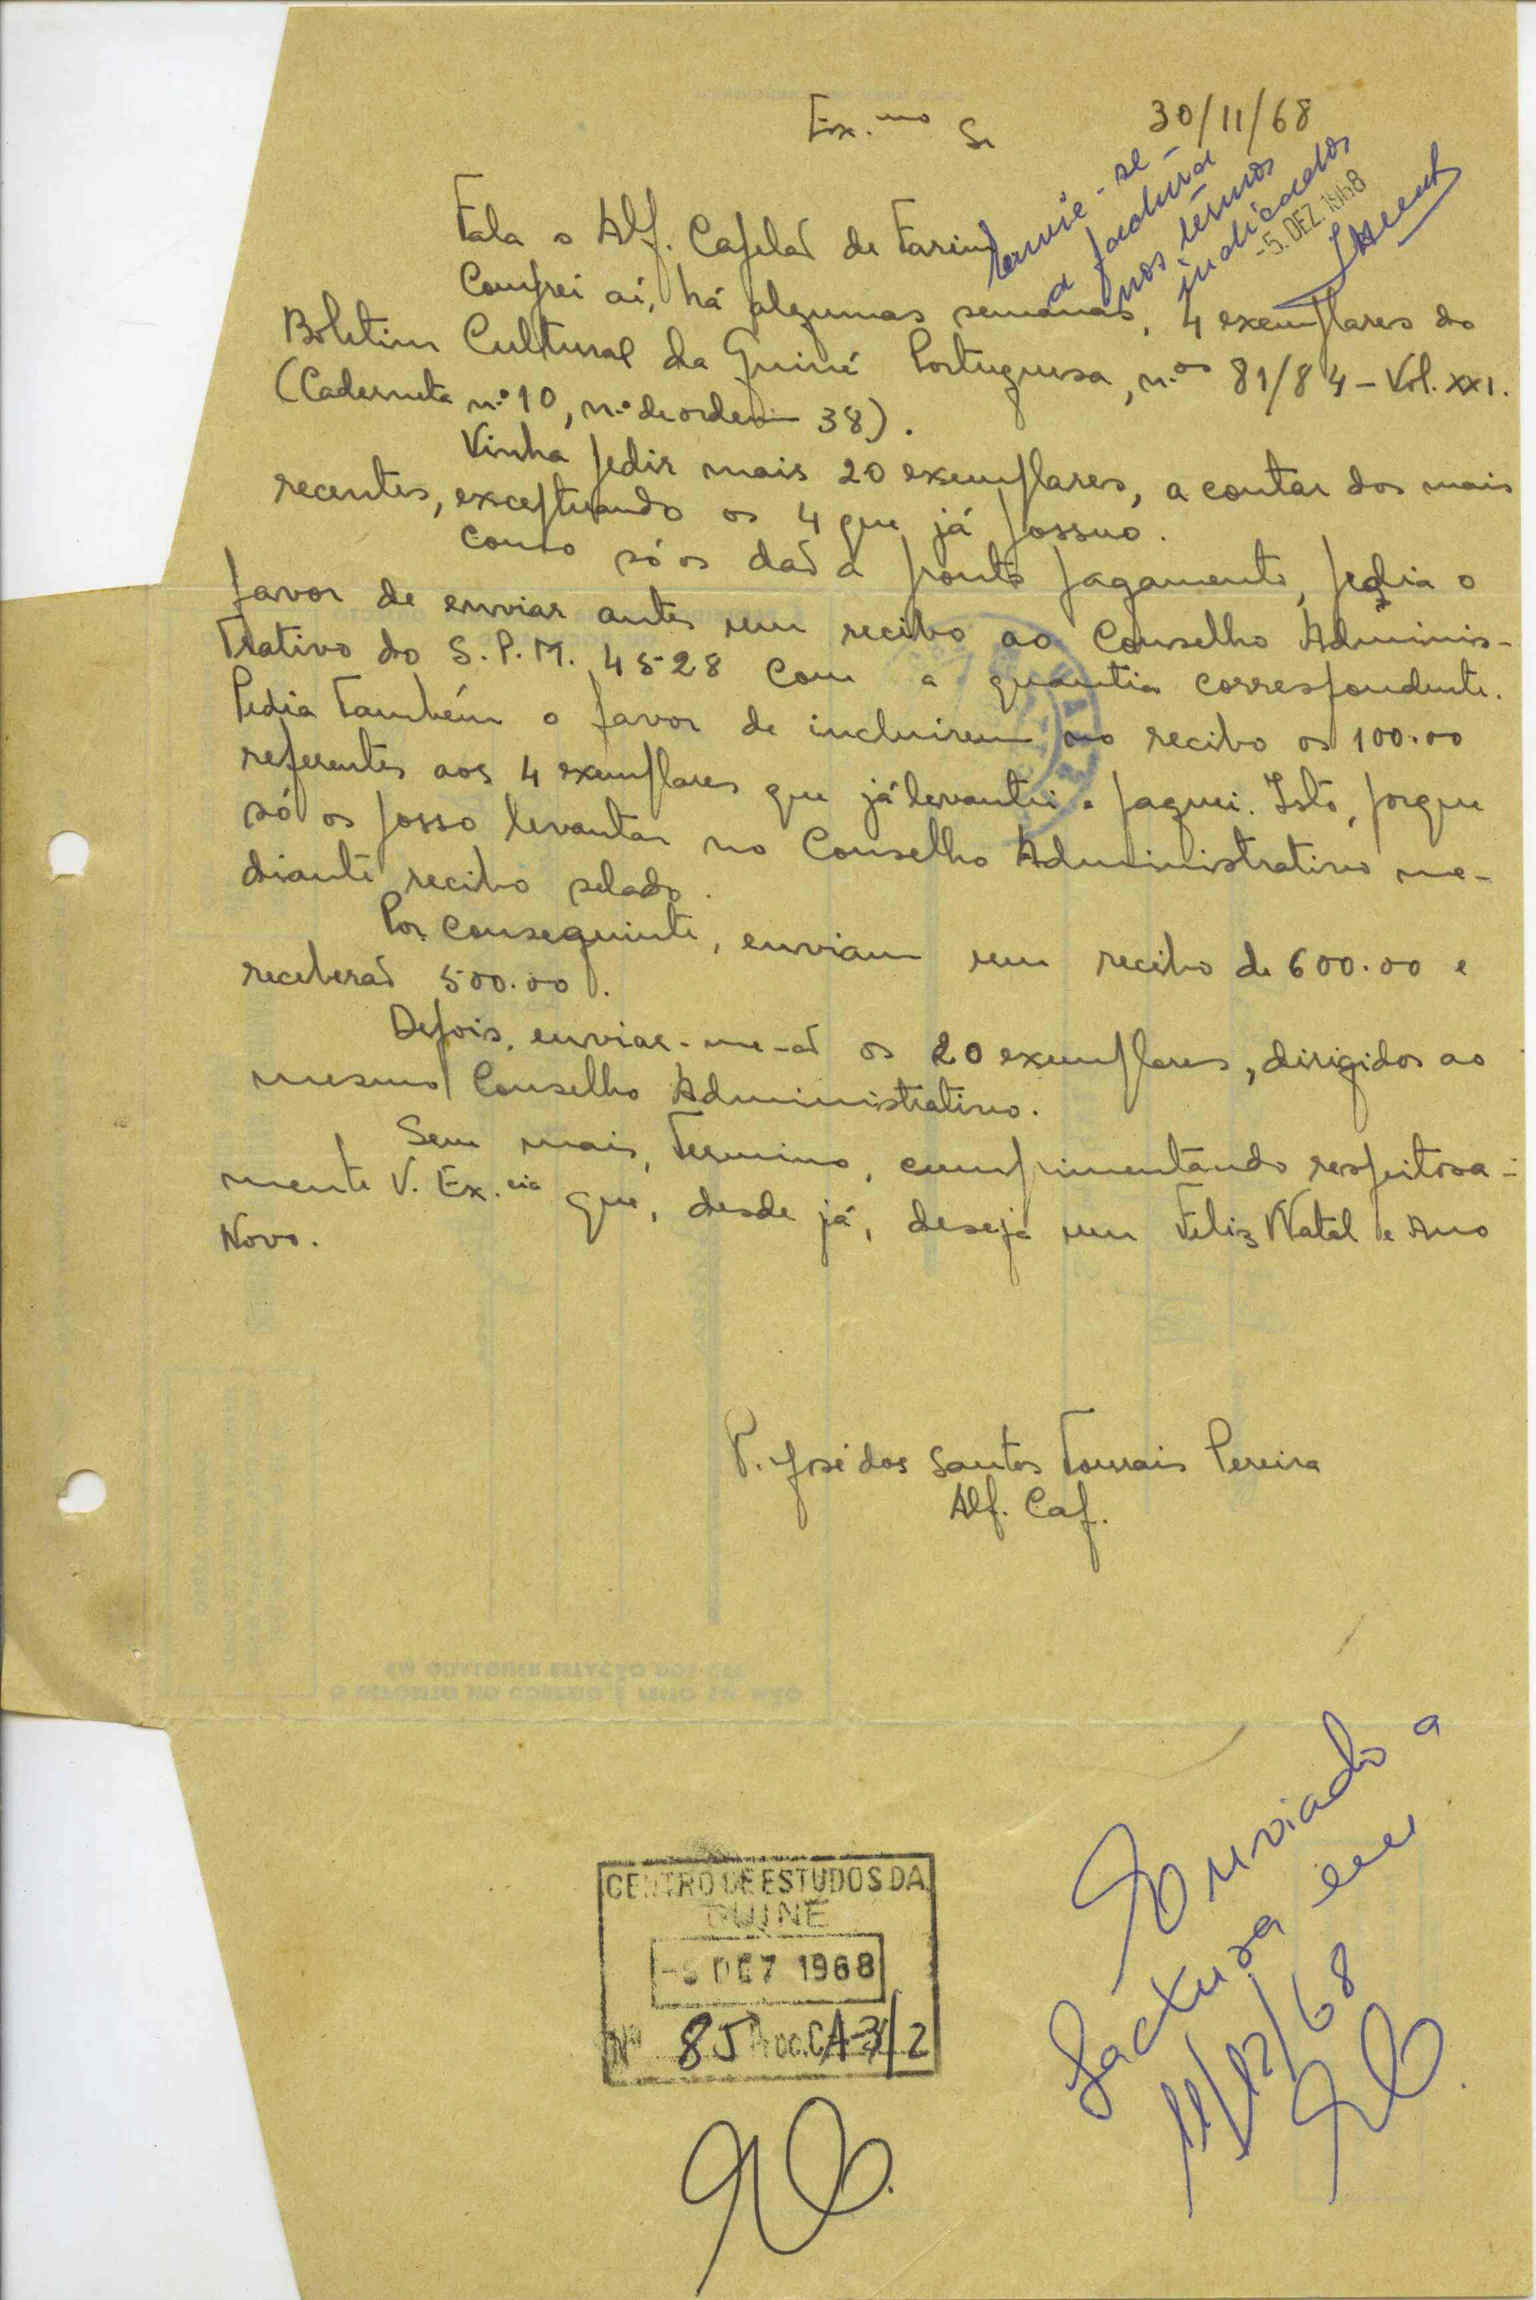 30/11/68
Ex.mo Sr
Envie-se
a factura
nos termos
indicados
-5. DEZ. 1968
Fala o Alf. Capelão de Farim
Comprei aí, há algumas semanas, 4 exemplares do
Boletim Cultural da Guiné Portuguesa, n.os 81/84 - Vol. XXI.
(Caderneta n.º 10, n.º de ordem 38).
Vinha pedir mais 20 exemplares, a contar dos mais
recentes, exceptuando os 4 que já possuo.
Como só os dão a pronto pagamento, pedia o
favor de enviar antes um recibo ao Conselho Adminis-
trativo do S.P.M. 4528 com a quantia correspondente.
Pedia também o favor de incluirem no recibo os 100.00
referentes aos 4 exemplares que já levantei e paguei. Isto, porque
só os posso levantar no Conselho Administrativo me-
diante recibo selado.
Por conseguinte, enviam um recibo de 600.00 e
receberão 500.00.
Depois, enviar-me-ão os 20 exemplares, dirigidos ao
mesmo Conselho Administrativo.
Sem mais, termino, cumprimentando respeitosa-
mente V. Ex.cia que, desde já, deseja um Feliz Natal e Ano
Novo.
P. José dos Santos Tourais Pereira
Alf. Cap.
CENTRO DE ESTUDOS DA
GUINÉ
-5 DEZ 1968
Nº 85 Proc. CA-3/2
Enviado a
factura em
11/12/68